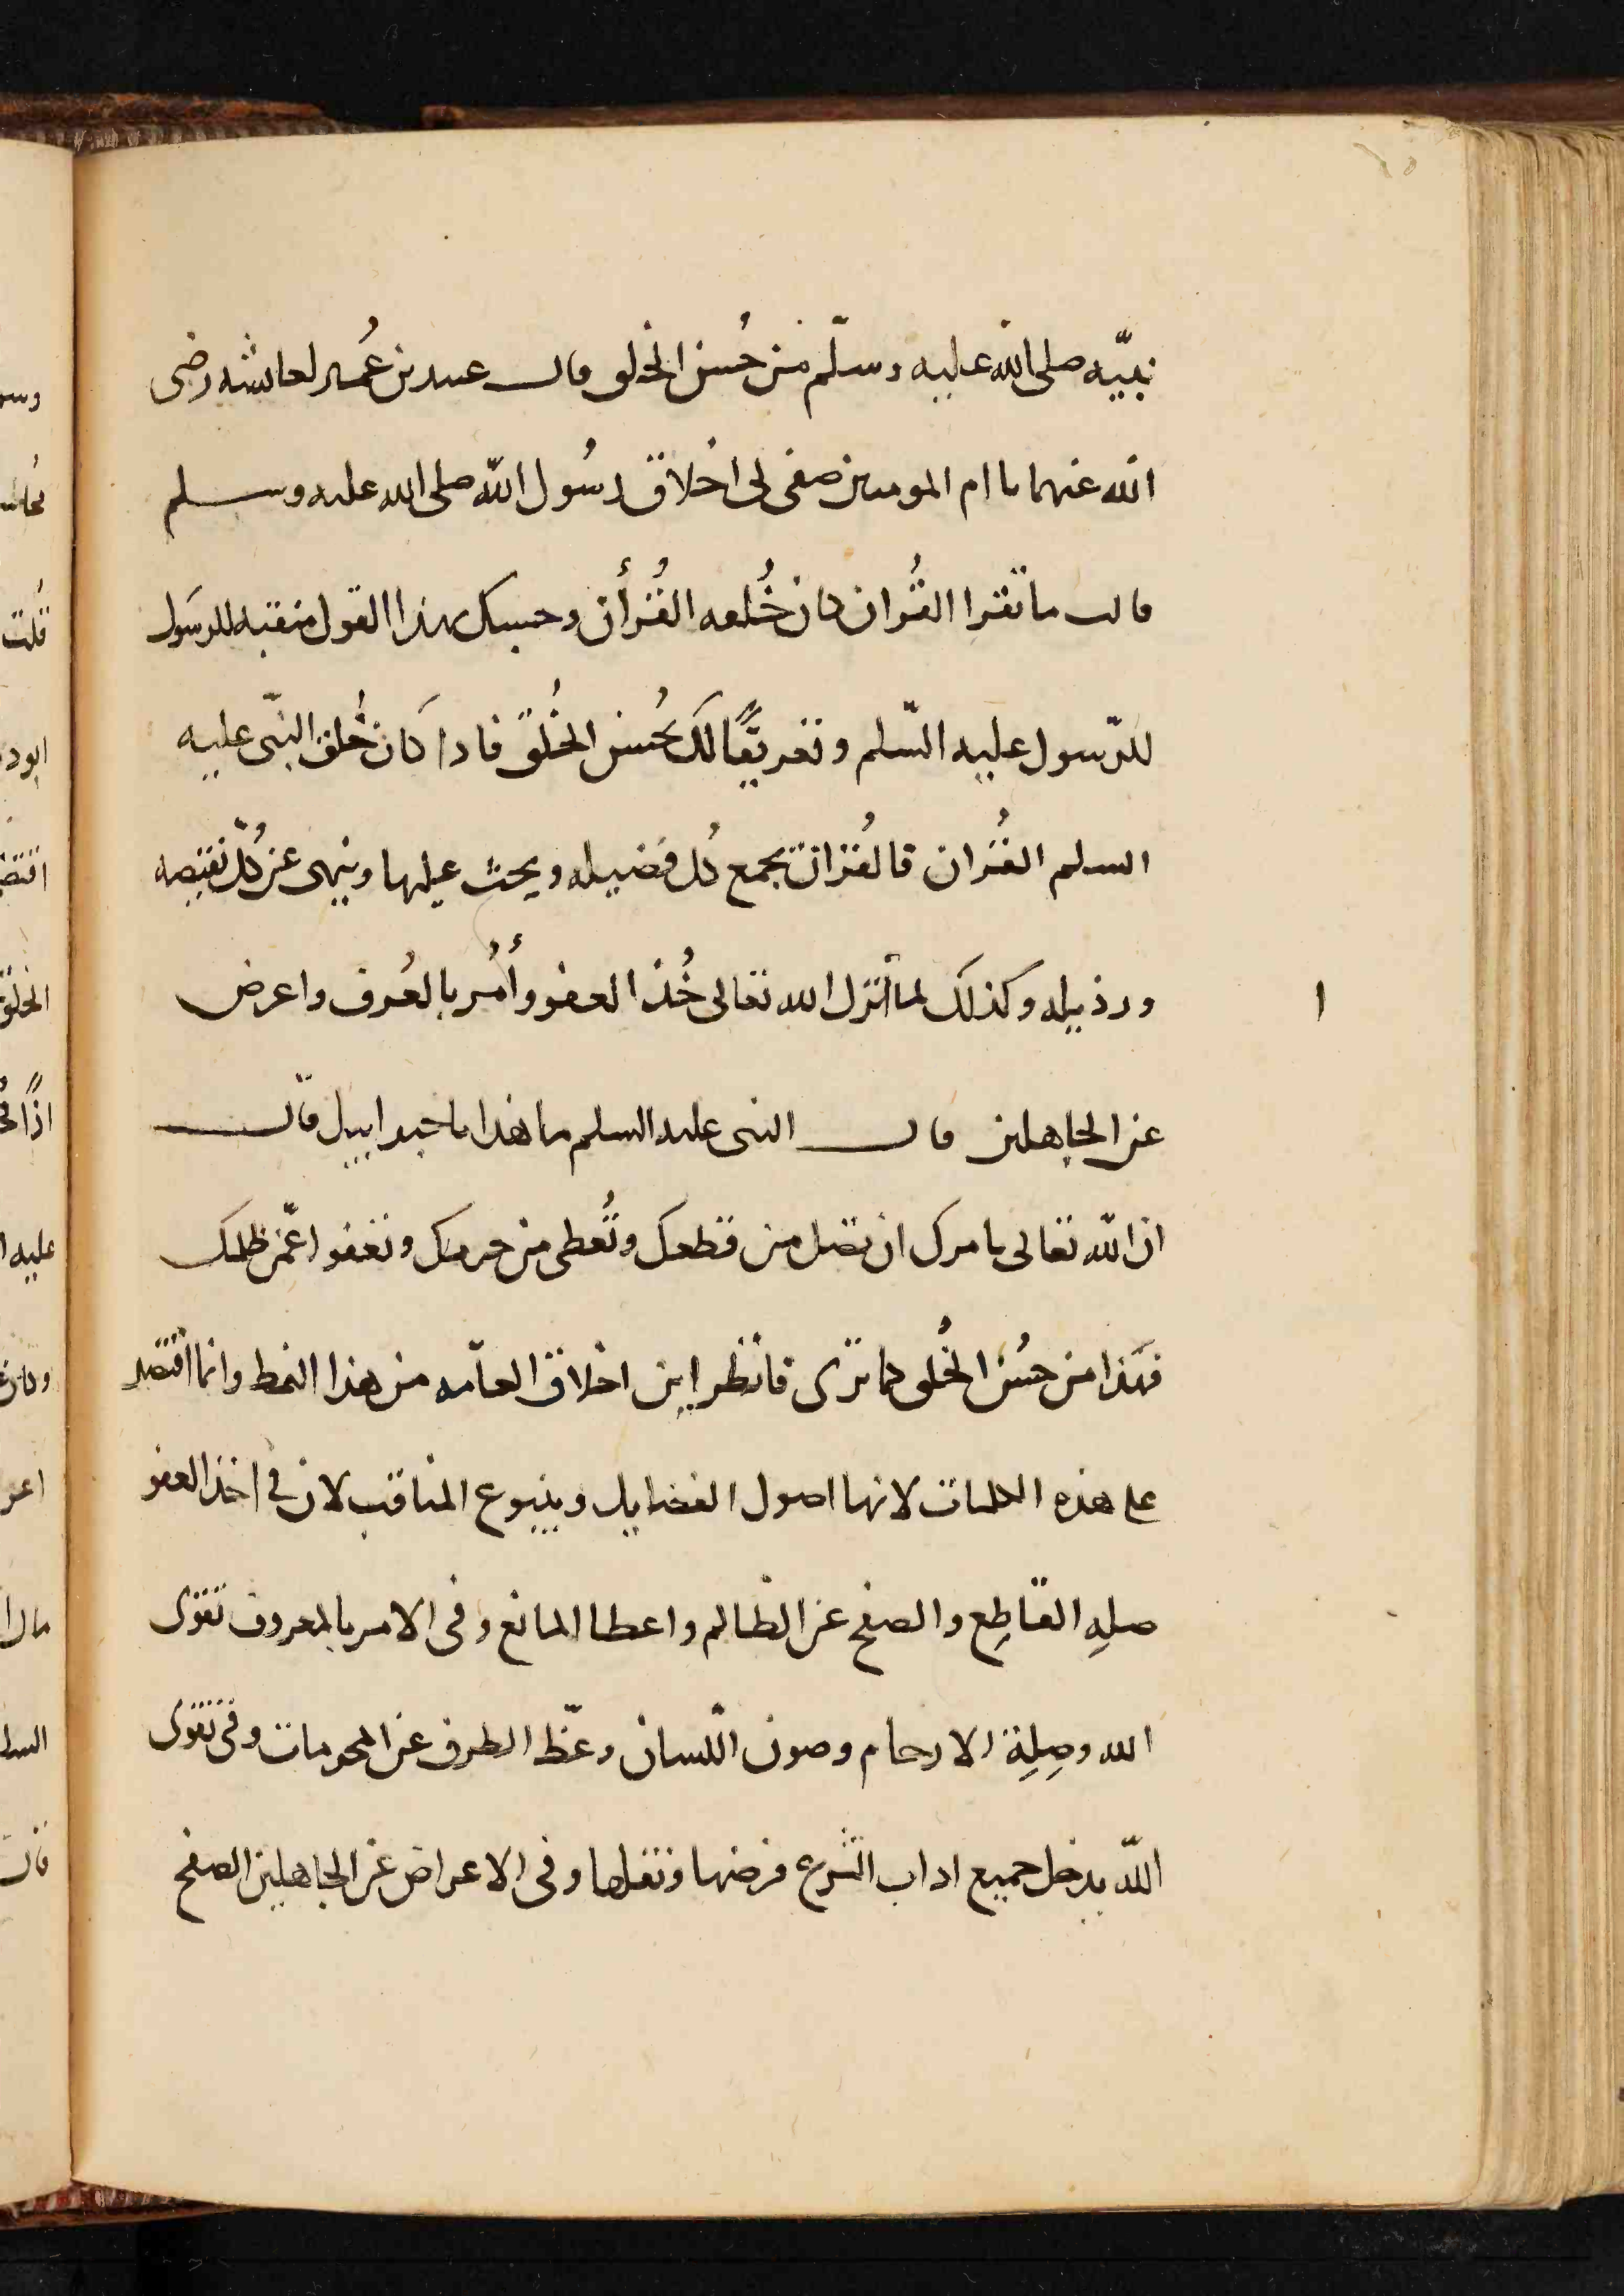 نبيّه صلى الله عليه وسلّم من حُسن الخلق قال عبيد بن عُمير لعائشه رضى
الله عنهما يا ام المومنين صفى لى اخلاق رسُول اللّه صلى الله عليه وسلم
قالت ما تقرا القُران كان خُلقه القُرأن وحسبك بهذا القول منقبه للرسَول
للرّسول عليه السّلم وتعريفًا لكَ بحُسن الخُلق فاذا كَان خُلق النبّى عليه
السلم القُران فالقُران يجمع كُل فضيله ويحث عليها وينهى عن كُلّ نقيصه
ورذيله وكذلكَ لما انزل الله تعالى خُذ العفو وأمُر بالعُرف واعرض
عن الجاهلين قال النبى عليه السلم ما هذا يا جبراييل قال
ان اللّه تعالى يامرك ان تصل من قطعك وتُعطى من حرمك وتعفوا عمّن ظلمك
فهَذا من حسُن الخُلق كما ترى فانظر اين اخلاق العامّه من هذا النمط وانما اقتصر
على هذه الكلمات لانها اصول الفضايل وينبوع المناقب لان في اخذ العفو
صلهِ القاطِع والصفح عن الظالم واعطا المانع وفى الامر بالمعروف تقوى
الله وصِلِة الارحام وصون اللّسان وغّظ الطرف عن المحرمات وفى تقوى
اللّه يدخل جميع اداب الشرع فرضها ونفلها وفى الاعراض عن الجاهلين الصفح